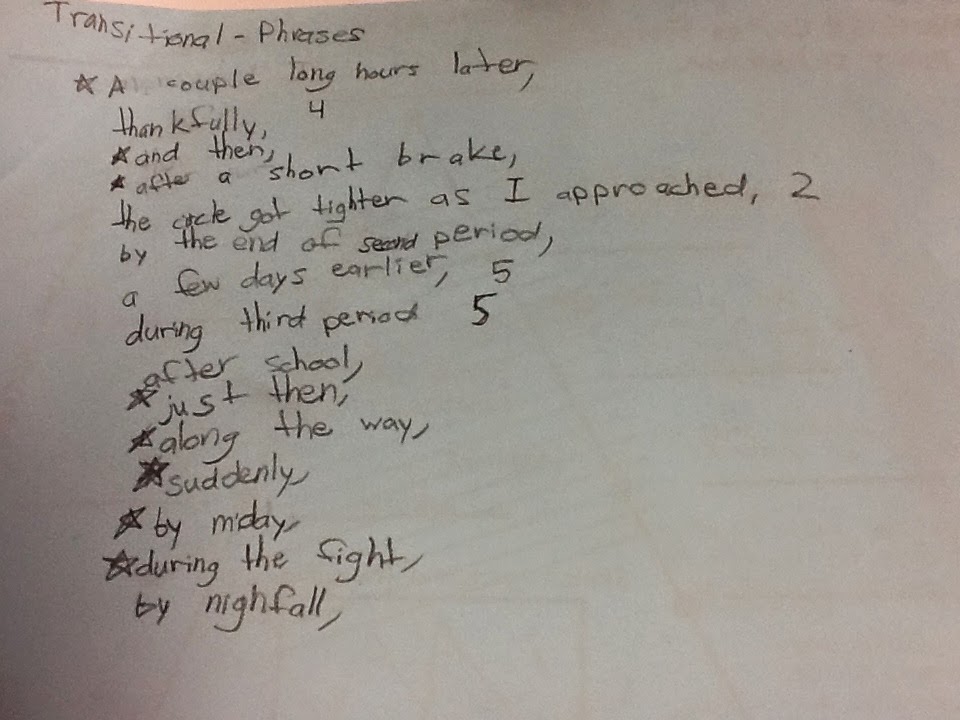 Transitional - Phrases
☆ A couple long hours later,
4
thankfully,
☆ and then,
☆ after a short brake,
the circle got tighter as I approached, 2
by the end of second period,
a few days earlier, 5
during third period 5
after school,
☆ just then,
☆ along the way,
☆ suddenly,
☆ by miday,
☆ during the fight,
by nighfall,